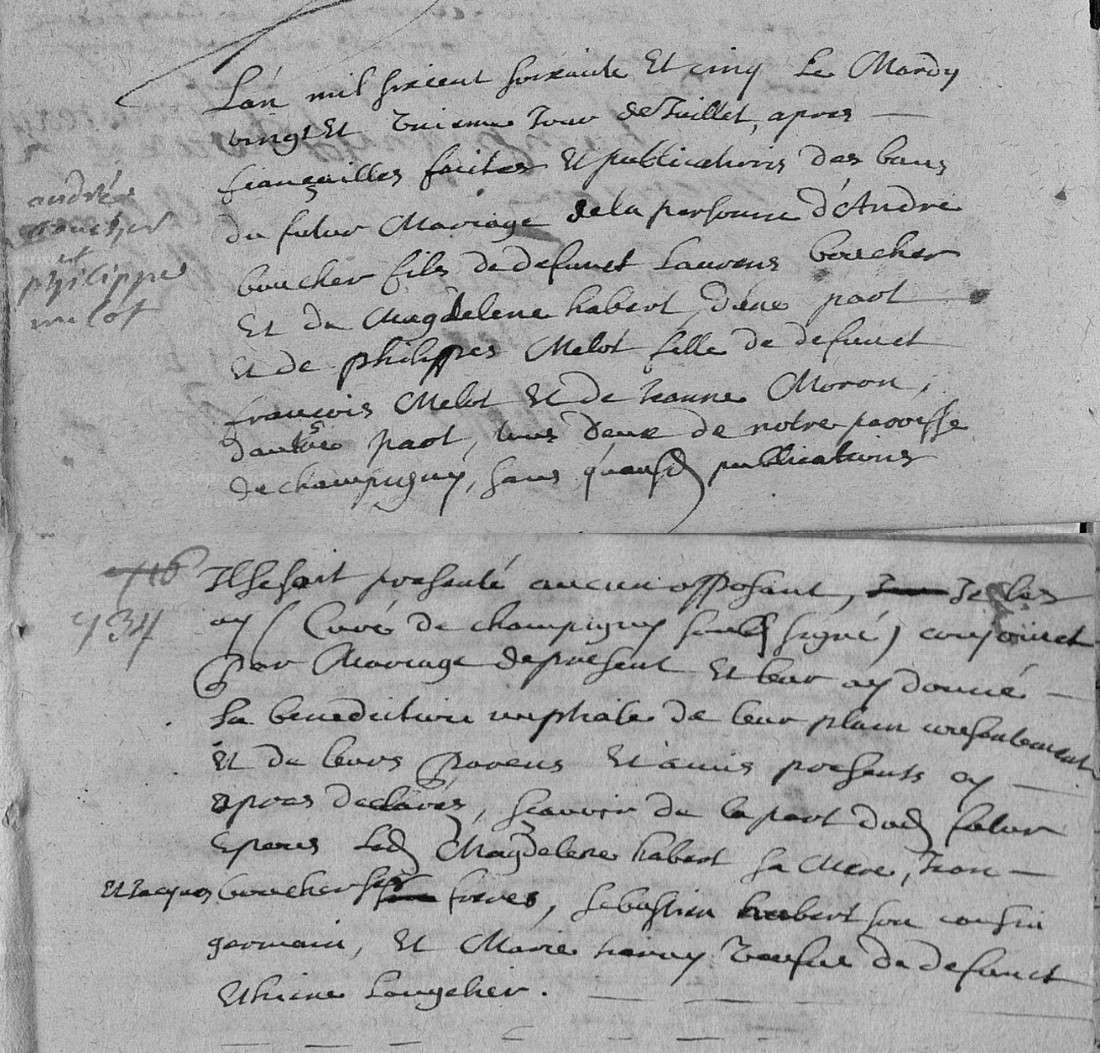 L'an mil sixcent soixante Et cinq Le Mardy
vingt Et unieme Jour de Juillet, apres —
fiançailles faites Et publications des bans
du futur Mariage de la personne d'André
boucher fils de defunct Laurens boucher
Et de Magdelene habert, d'une part
Et de philippes Melot fille de defunct
françois Melot Et de Jeanne Moron,
d'autre part, tous deux de notre paroisse
de champigny, sans q'ausd publications
andré
boucher
et
philippe
melot
716
734
Il se soit presenté aucun opposant, Je les
ay (Curé de champigny soubs signé) conjoinct
par Mariage de present Et leur ay donné —
la benediction nuptiale de leur plain consentement
Et de leurs parens Et amis presents cy —
apres declarés, sçavoir de la part dud futur
Epoux Lad Magdelene habert sa Mere, Jean —
Et Jacques boucher ses freres, sebastien habert son cousin
germain, Et Marie haruy veufue de defunct
Ethiene Langelier.